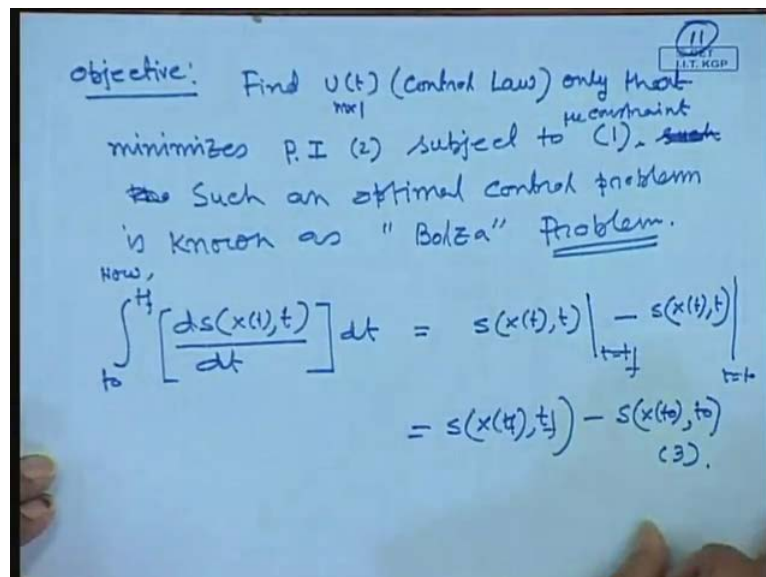 11
I.I.T. KGP
Objective: Find U(t) (Control Law) only that
m×1
the constraint
minimizes P.I (2) subject to (1). such
Such an optimal control problem
is known as "Bolza" Problem.
Now,
∫_{t0}^{tf} [ds(x(t),t)/dt] dt = s(x(t),t)|_{t=tf} − s(x(t),t)|_{t=t0}
= s(x(tf),tf) − s(x(t0),t0)
(3).